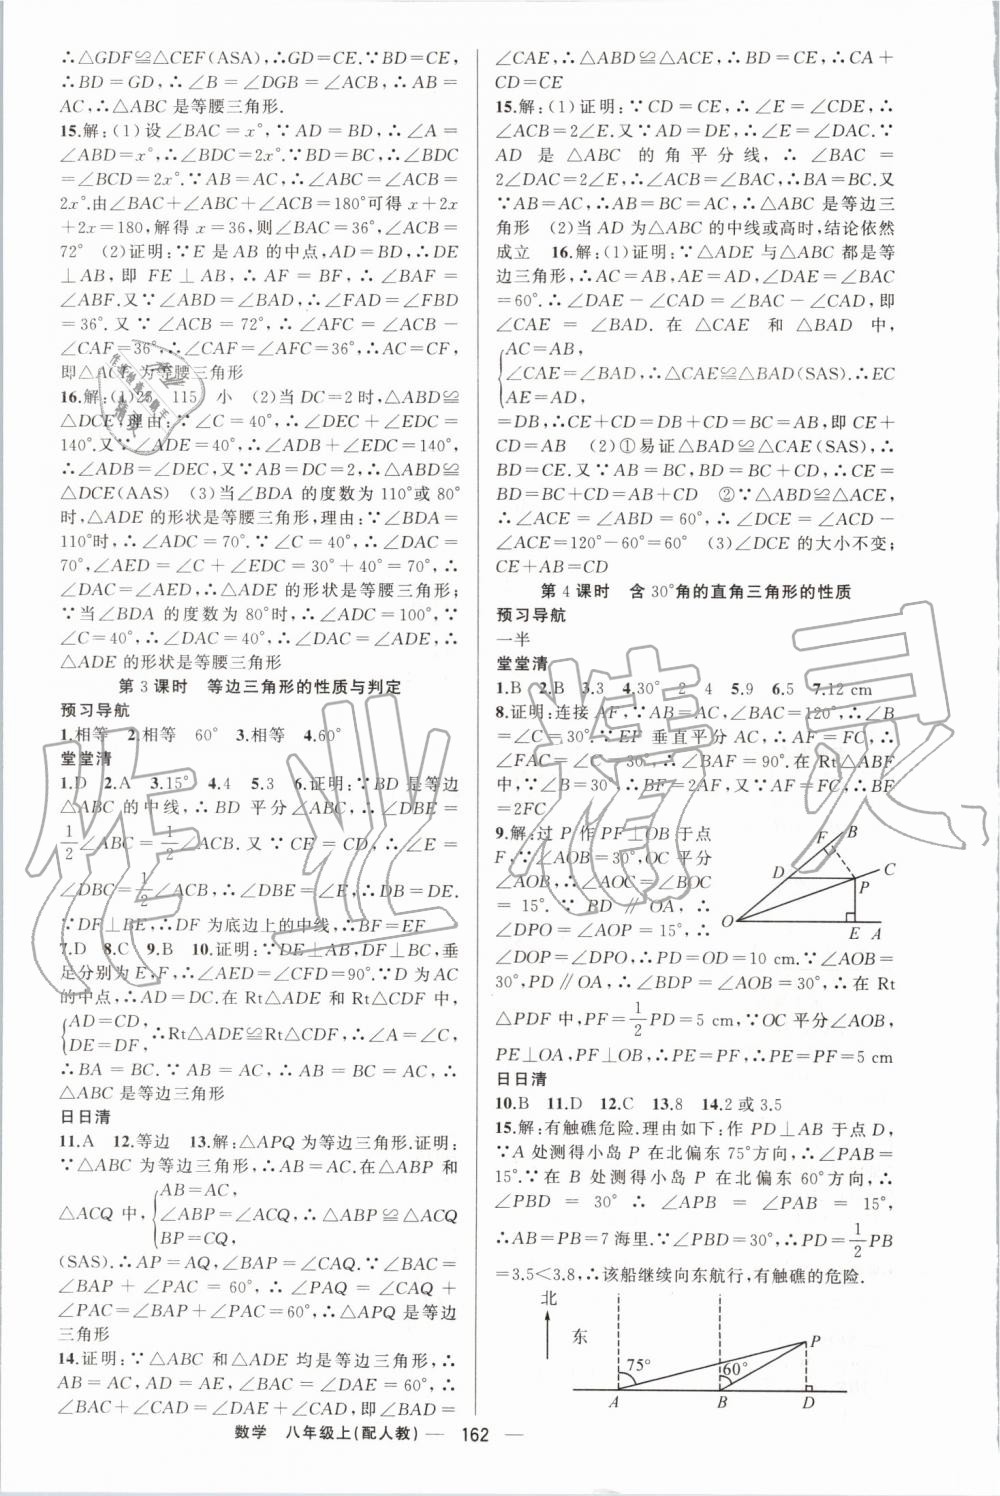 ∴△GDF≌△CEF(ASA),∴GD=CE.∵BD=CE,
∴BD=GD,∴∠B=∠DGB=∠ACB,∴AB=
AC,∴△ABC是等腰三角形.
15.解:(1)设∠BAC=x°,∵AD=BD,∴∠A=
∠ABD=x°,∴∠BDC=2x°.∵BD=BC,∴∠BDC
=∠BCD=2x°.∵AB=AC,∴∠ABC=∠ACB=
2x°.由∠BAC+∠ABC+∠ACB=180°可得x+2x
+2x=180,解得x=36,则∠BAC=36°,∠ABC=
72° (2)证明:∵E是AB的中点,AD=BD,∴DE
⊥AB,即FE⊥AB,∴AF=BF,∴∠BAF=
∠ABF.又∵∠ABD=∠BAD,∴∠FAD=∠FBD
=36°.又∵∠ACB=72°,∴∠AFC=∠ACB-
∠CAF=36°,∴∠CAF=∠AFC=36°,∴AC=CF,
即△ACF为等腰三角形
16.解:(1)25 115 小 (2)当DC=2时,△ABD≌
△DCE.理由:∵∠C=40°,∴∠DEC+∠EDC=
140°.又∵∠ADE=40°,∴∠ADB+∠EDC=140°,
∴∠ADB=∠DEC,又∵AB=DC=2,∴△ABD≌
△DCE(AAS) (3)当∠BDA的度数为110°或80°
时,△ADE的形状是等腰三角形,理由:∵∠BDA=
110°时,∴∠ADC=70°.∵∠C=40°,∴∠DAC=
70°,∠AED=∠C+∠EDC=30°+40°=70°,∴
∠DAC=∠AED,∴△ADE的形状是等腰三角形;
∵当∠BDA的度数为80°时,∴∠ADC=100°.∵
∠C=40°,∴∠DAC=40°,∴∠DAC=∠ADE,∴
△ADE的形状是等腰三角形
第3课时 等边三角形的性质与判定
预习导航
1.相等 2.相等 60° 3.相等 4.60°
堂堂清
1.D 2.A 3.15° 4.4 5.3 6.证明:∵BD是等边
△ABC的中线,∴BD平分∠ABC,∴∠DBE=
1/2∠ABC=1/2∠ACB.又∵CE=CD,∴∠E=
∠DBC=1/2∠ACB,∴∠DBE=∠E,∴DB=DE.
∵DF⊥BE,∴DF为底边上的中线,∴BF=EF
7.D 8.C 9.B 10.证明:∵DE⊥AB,DF⊥BC,垂
足分别为E,F,∴∠AED=∠CFD=90°.∵D为AC
的中点,∴AD=DC.在Rt△ADE和Rt△CDF中,
{AD=CD,
DE=DF,∴Rt△ADE≌Rt△CDF,∴∠A=∠C,
∴BA=BC.∵AB=AC,∴AB=BC=AC,∴
△ABC是等边三角形
日日清
11.A 12.等边 13.解:△APQ为等边三角形.证明:
∵△ABC为等边三角形,∴AB=AC.在△ABP和
△ACQ中,{AB=AC,
∠ABP=∠ACQ,∴△ABP≌△ACQ
BP=CQ,
(SAS).∴AP=AQ,∠BAP=∠CAQ.∵∠BAC=
∠BAP+∠PAC=60°,∴∠PAQ=∠CAQ+
∠PAC=∠BAP+∠PAC=60°,∴△APQ是等边
三角形
14.证明:∵△ABC和△ADE均是等边三角形,∴
AB=AC,AD=AE,∠BAC=∠DAE=60°,∴
∠BAC+∠CAD=∠DAE+∠CAD,即∠BAD=
∠CAE,∴△ABD≌△ACE,∴BD=CE,∴CA+
CD=CE
15.解:(1)证明:∵CD=CE,∴∠E=∠CDE,∴
∠ACB=2∠E.又∵AD=DE,∴∠E=∠DAC.∵
AD是△ABC的角平分线,∴∠BAC=
2∠DAC=2∠E,∴∠ACB=∠BAC,∴BA=BC.又
∵AB=AC,∴AB=BC=AC,∴△ABC是等边三
角形 (2)当AD为△ABC的中线或高时,结论依然
成立 16.解:(1)证明:∵△ADE与△ABC都是等
边三角形,∴AC=AB,AE=AD,∠DAE=∠BAC
=60°.∴∠DAE-∠CAD=∠BAC-∠CAD,即
∠CAE=∠BAD.在△CAE和△BAD中,
{AC=AB,
∠CAE=∠BAD,∴△CAE≌△BAD(SAS).∴EC
AE=AD,
=DB,∴CE+CD=DB+CD=CB=AB,即CE+
CD=AB (2)①易证△BAD≌△CAE(SAS),∴
BD=CE.又∵AB=BC,BD=BC+CD,∴CE=
BD=BC+CD=AB+CD ②∵△BAD≌△ACE,
∴∠ACE=∠ABD=60°,∴∠DCE=∠ACD-
∠ACE=120°-60°=60° (3)∠DCE的大小不变;
CE+AB=CD
第4课时 含30°角的直角三角形的性质
预习导航
一半
堂堂清
1.B 2.B 3.3 4.30° 2 4 5.9 6.5 7.12 cm
8.证明:连接AF,∵AB=AC,∠BAC=120°,∴∠B
=∠C=30°.∵EF垂直平分AC,∴AF=FC,∴
∠FAC=∠C=30°,∴∠BAF=90°.在Rt△ABF
中,∵∠B=30°,∴BF=2AF,又∵AF=FC,∴BF
=2FC
9.解:过P作PF⊥OB于点
F,∵∠AOB=30°,OC平分
∠AOB,∴∠AOC=∠BOC
=15°.∵PD∥OA,∴
∠DPO=∠AOP=15°,∴
∠DOP=∠DPO,∴PD=OD=10 cm.∵∠AOB=
30°,PD∥OA,∴∠BDP=∠AOB=30°,∴在Rt
△PDF中,PF=1/2PD=5 cm,∵OC平分∠AOB,
PE⊥OA,PF⊥OB,∴PE=PF,∴PE=PF=5 cm
F
B
D
C
P
O
E
A
日日清
10.B 11.D 12.C 13.8 14.2或3.5
15.解:有触礁危险.理由如下:作PD⊥AB于点D,
∵A处测得小岛P在北偏东75°方向,∴∠PAB=
15°.∵在B处测得小岛P在北偏东60°方向,∴
∠PBD=30°∴∠APB=∠PAB=15°,
∴AB=PB=7海里.∵∠PBD=30°,∴PD=1/2PB
=3.5<3.8,∴该船继续向东航行,有触礁的危险.
北
东
75°
60°
P
A
B
D
数学 八年级上(配人教) — 162 —
作业精灵